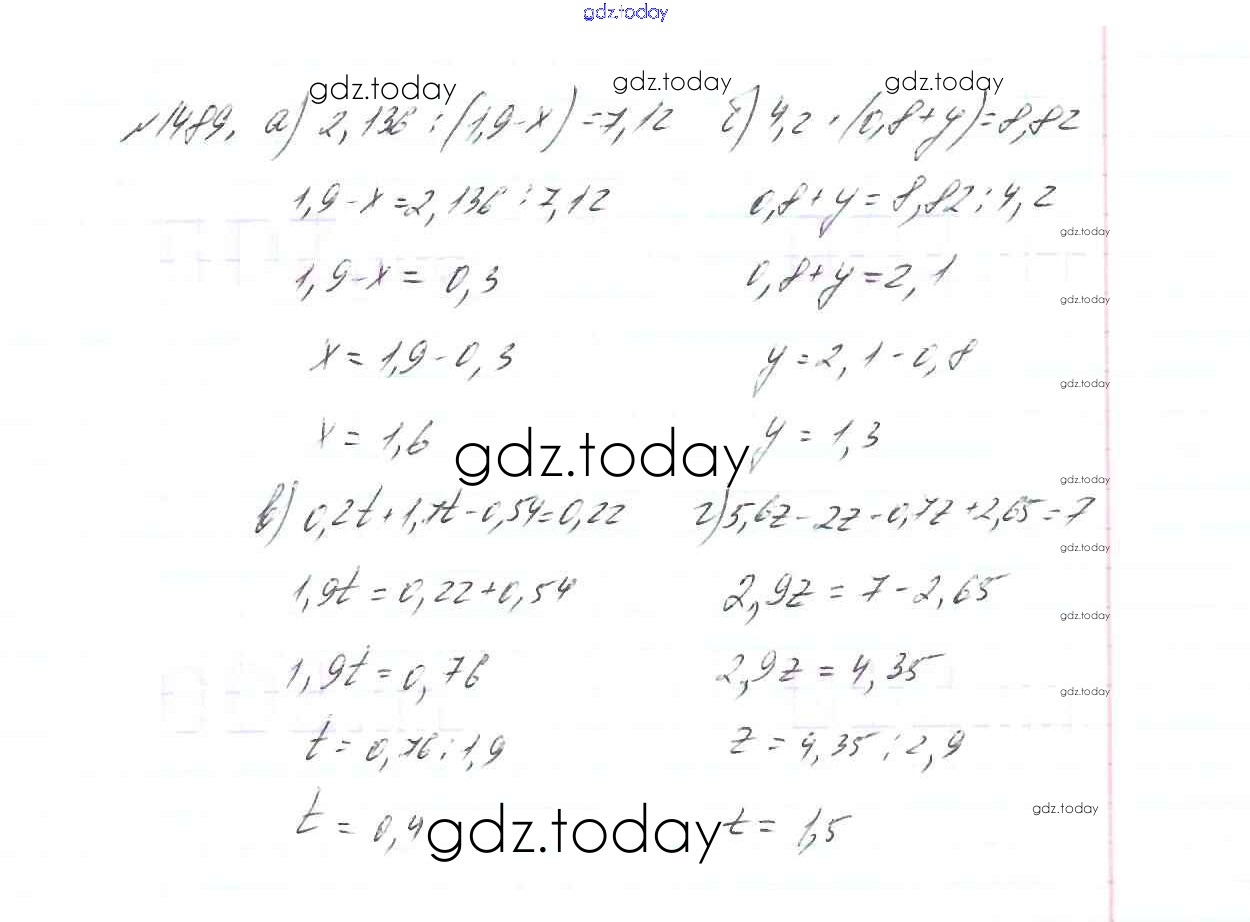 gdz.today
gdz.today gdz.today gdz.today
№1489. а) 2,136 : (1,9-x) = 7,12 б) 4,2 · (0,8+y) = 8,82
1,9-x = 2,136 : 7,12 0,8+y = 8,82 : 4,2
gdz.today
1,9-x = 0,3 0,8+y = 2,1
gdz.today
x = 1,9-0,3 y = 2,1-0,8
gdz.today
x = 1,6 gdz.today y = 1,3
gdz.today
в) 0,2t+1,7t-0,54=0,22 г) 5,6z-2z-0,7z+2,65=7
gdz.today
1,9t = 0,22+0,54 2,9z = 7-2,65
gdz.today
1,9t = 0,76 2,9z = 4,35
gdz.today
t = 0,76 : 1,9 z = 4,35 : 2,9
gdz.today
t = 0,4 gdz.today t = 1,5